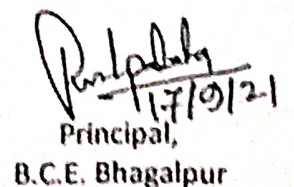 17/9/21
Principal,
B.C.E. Bhagalpur